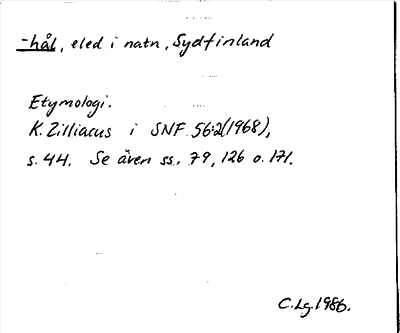 -hål, eled i natn, Sydfinland
Etymologi.
K. Zilliacus i SNF 56:2(1968),
s. 44. Se även ss. 79, 126 o. 171.
C.Lg. 1986.